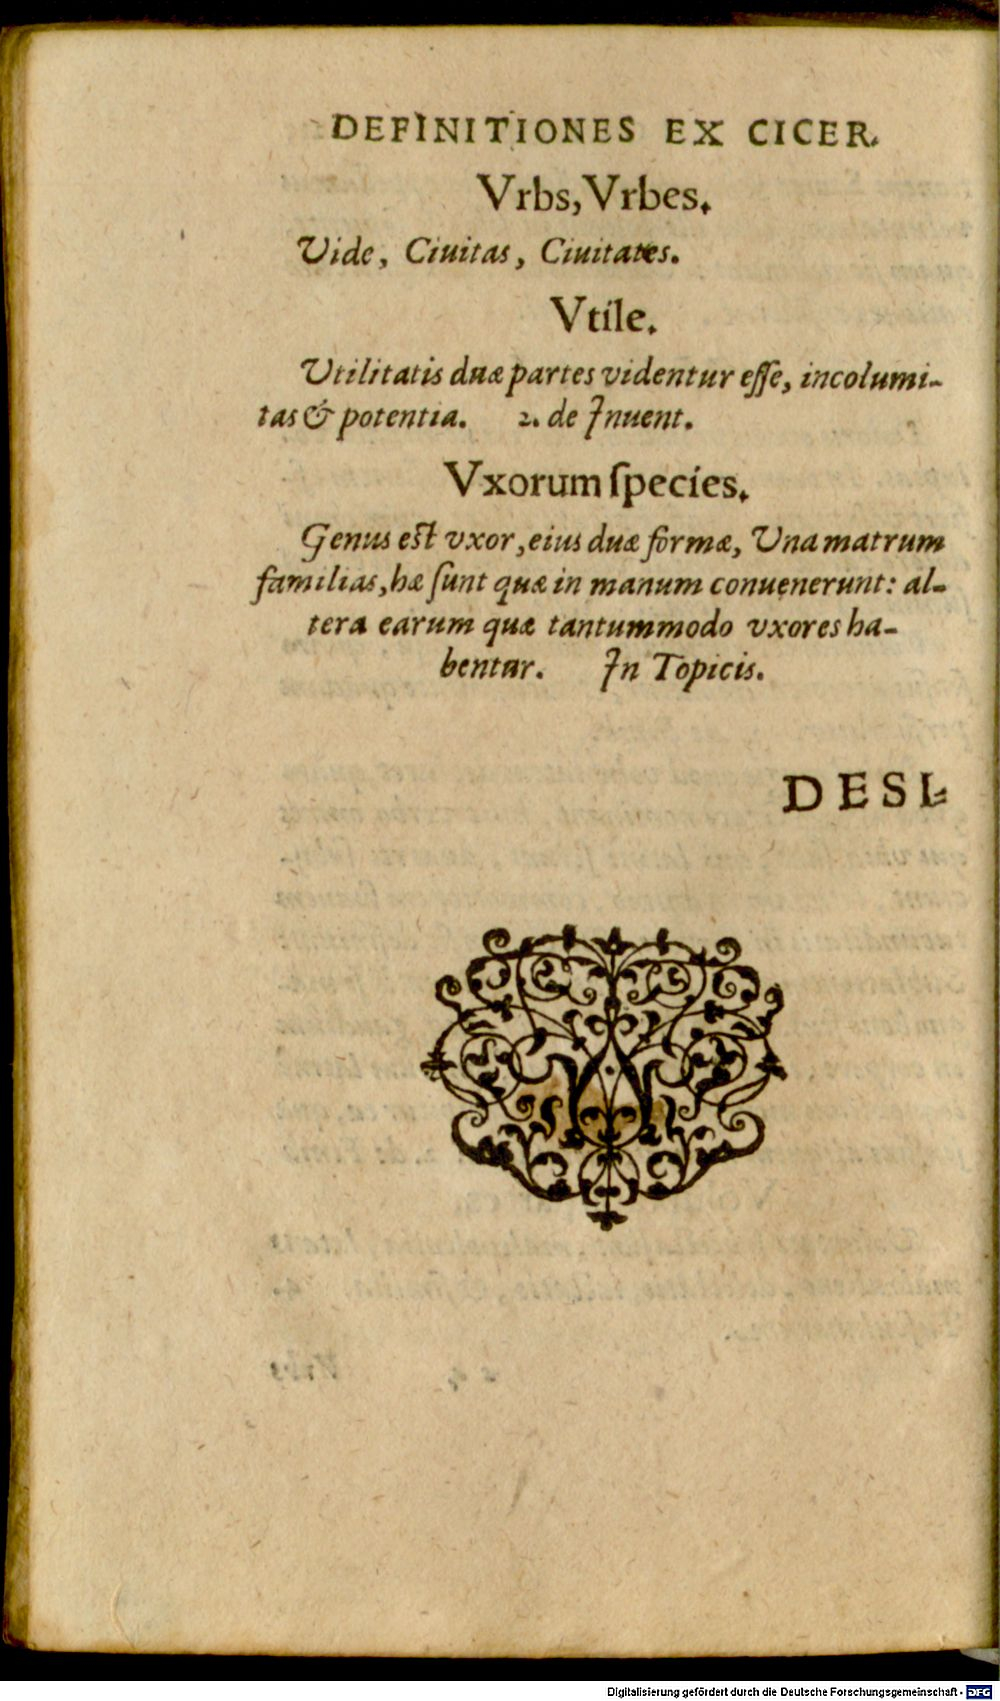 DEFINITIONES EX CICER.
Vrbs, Vrbes.
Vide, Ciuitas, Ciuitates.
Vtile.
Vtilitatis duæ partes videntur eſſe, incolumi-
tas & potentia. 2. de Inuent.
Vxorum ſpecies.
Genus eſt vxor, eius duæ formæ, Vna matrum
familias, hæ ſunt quæ in manum conuenerunt: al-
tera earum quæ tantummodo vxores ha-
bentur. In Topicis.
DESI-
Digitalisierung gefördert durch die Deutsche Forschungsgemeinschaft - DFG